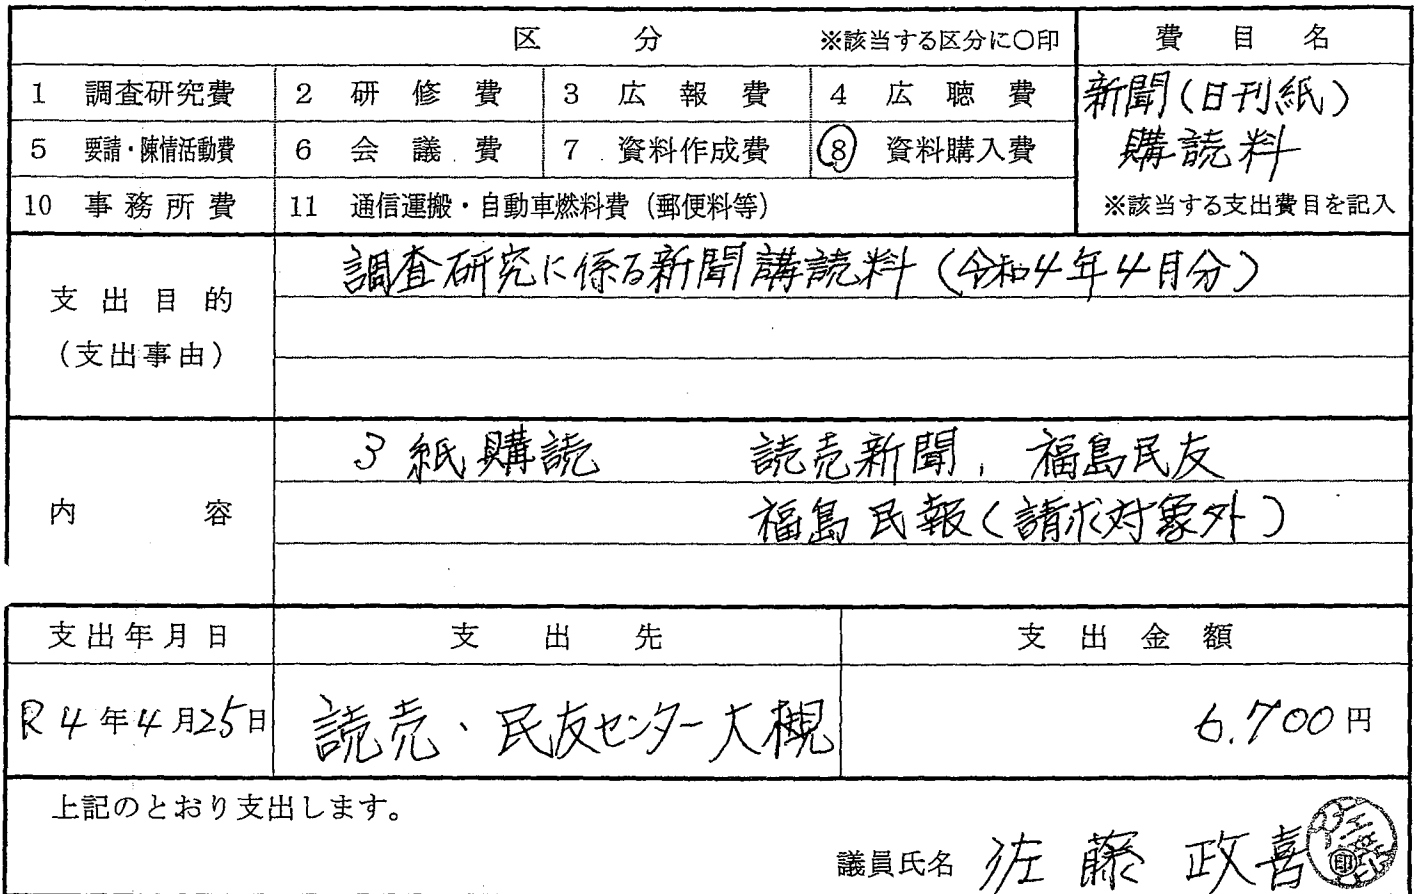 区 分 ※該当する区分に○印 費 目 名
1 調査研究費 2 研 修 費 3 広 報 費 4 広 聴 費 新聞(日刊紙)
5 要請・陳情活動費 6 会 議 費 7 資料作成費 8 資料購入費 購読料
10 事務所費 11 通信運搬・自動車燃料費(郵便料等) ※該当する支出費目を記入
支出目的 調査研究に係る新聞講読料(令和4年4月分)
(支出事由)
3紙購読 読売新聞, 福島民友
内 容 福島民報(請求対象外)
支出年月日 支 出 先 支 出 金 額
R4年4月25日 読売、民友センター大槻 6.700円
上記のとおり支出します。
議員氏名 佐藤 政喜 印